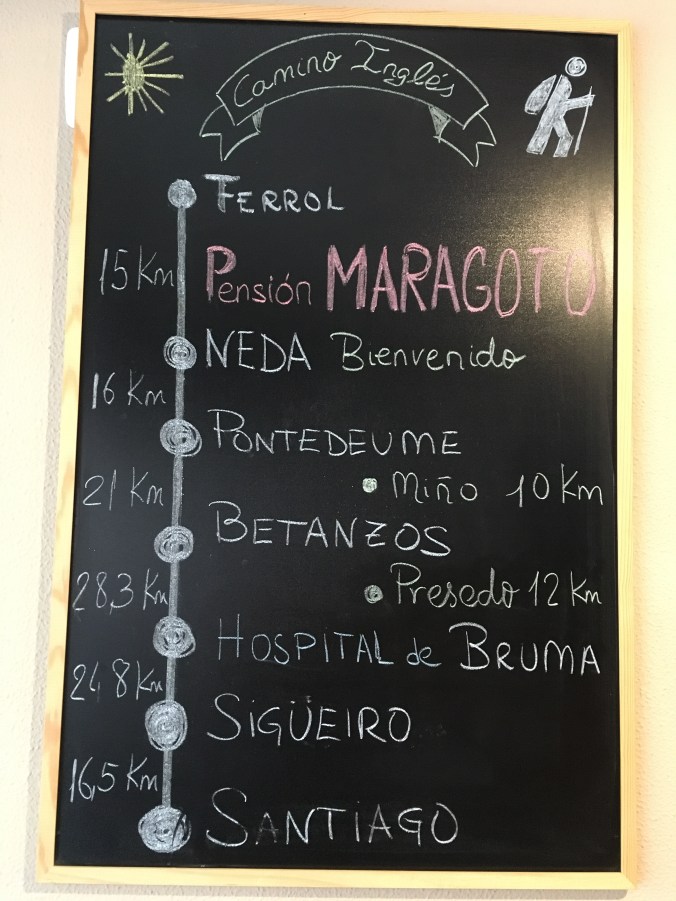 Camino Inglés
FERROL
15 Km
Pensión MARAGOTO
NEDA Bienvenido
16 Km
PONTEDEUME
21 Km
• Miño 10 Km
BETANZOS
28,3 Km
• Presedo 12 Km
HOSPITAL de BRUMA
24 8 Km
SIGÜEIRO
16,5 Km
SANTIAGO